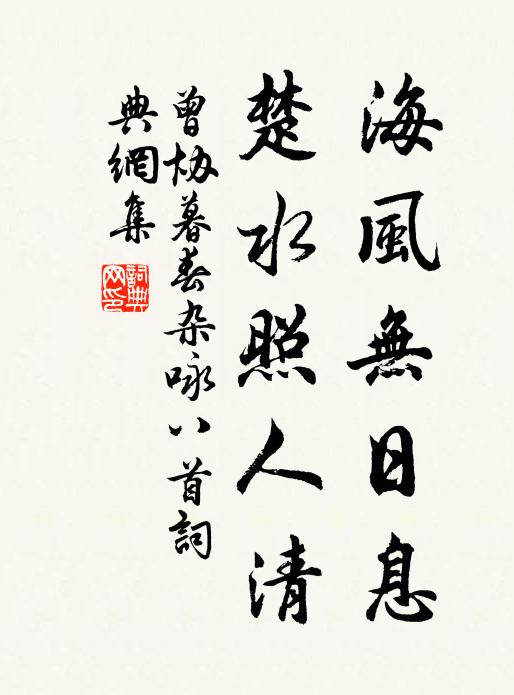 海風無日息
楚水照人清
曾协暮春杂咏八首詞
典網集
詞典
网印